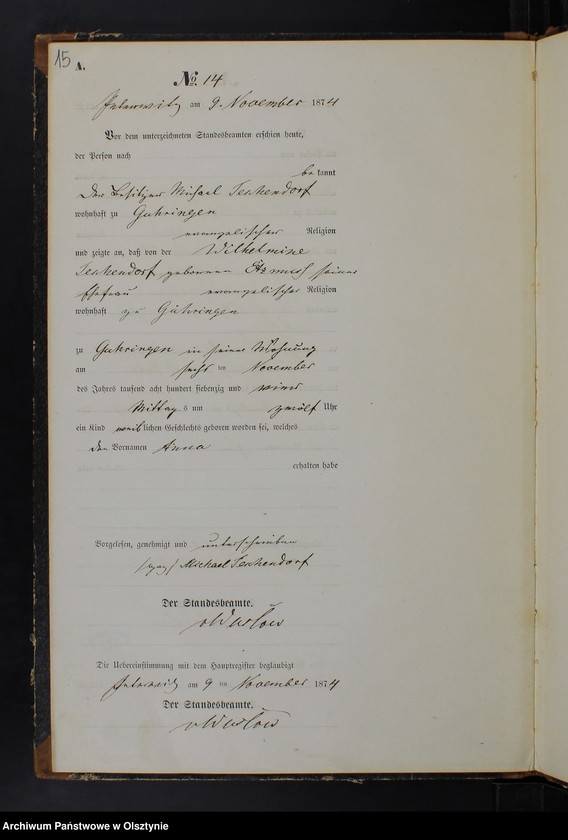 15
A.
No. 14
Peterwitz am 9. November 1874
Vor dem unterzeichneten Standesbeamten erschien heute,
der Person nach
bekannt
Der Besitzer Michael Teschendorf
wohnhaft zu Guhringen
evangelischer Religion
und zeigte an, daß von der Wilhelmine
Teschendorf geborenen seiner
Ehefrau evangelischer Religion
wohnhaft zu Guhringen
zu Guhringen in seiner Wohnung
am sechsten November
des Jahres tausend acht hundert siebenzig und vier
Mittags um zwölf Uhr
ein Kind weiblichen Geschlechts geboren worden sei, welches
den Vornamen Anna
erhalten habe
Vorgelesen, genehmigt und unterschrieben
Michael Teschendorf
Der Standesbeamte.
Die Uebereinstimmung mit dem Hauptregister beglaubigt
Peterwitz am 9 ten November 1874
Der Standesbeamte.
Archiwum Państwowe w Olsztynie